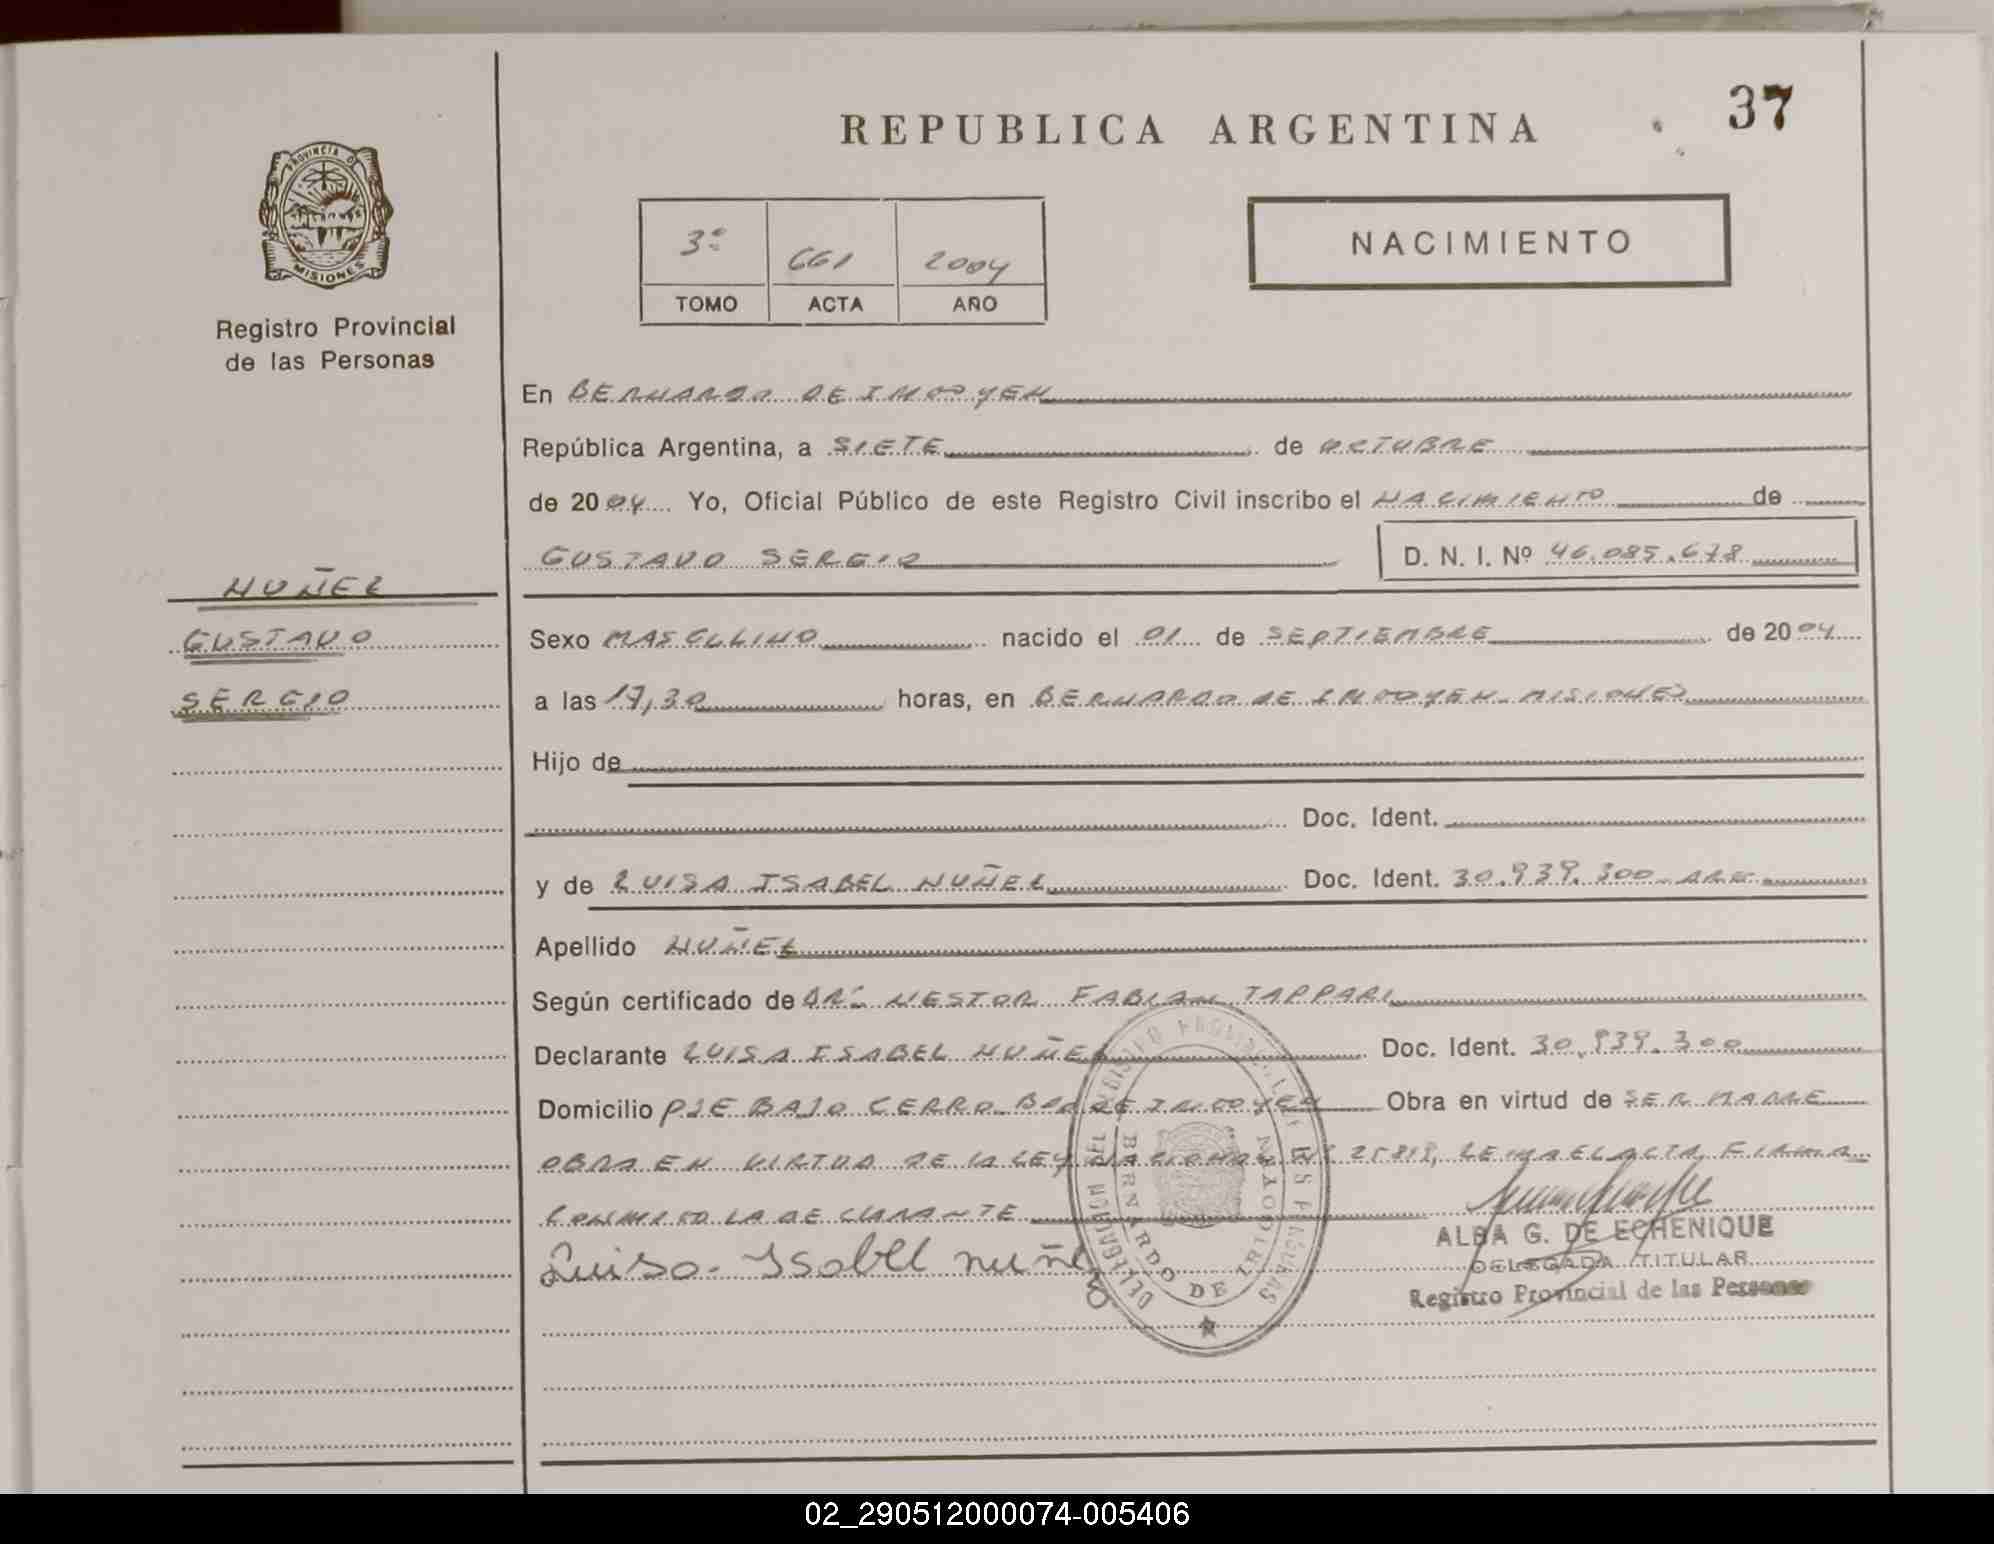 REPUBLICA ARGENTINA
37
PROVINCIA DE
MISIONES
Registro Provincial
de las Personas
3º 661 2004
TOMO ACTA AÑO
NACIMIENTO
En BERNARDO DE IRIGOYEN
República Argentina, a SIETE de OCTUBRE
de 2004 Yo, Oficial Público de este Registro Civil inscribo el NACIMIENTO de
GUSTAVO SERGIO D. N. I. Nº 46.085.678
NUÑEZ
GUSTAVO
SERGIO
Sexo MASCULINO nacido el 01 de SEPTIEMBRE de 2004
a las 17,30 horas, en BERNARDO DE IRIGOYEN - MISIONES
Hijo de
Doc. Ident.
y de LUISA ISABEL NUÑEZ Doc. Ident. 30.939.300 ARG.
Apellido NUÑEZ
Según certificado de DR. NESTOR FABIAN TAPPARI
Declarante LUISA ISABEL NUÑEZ Doc. Ident. 30.939.300
Domicilio PJE BAJO CERRO BDO DE IRIGOYEN Obra en virtud de SER MADRE
OBRA EN VIRTUD DE LA LEY NACIONAL Nº 25819, LEIDA EL ACTA, FIRMA
CONMIGO LA DECLARANTE
Luisa Isabel nuñez
DELEGACION DEL REGISTRO PROVINCIAL DE LAS PERSONAS
BERNARDO DE IRIGOYEN
ALBA G. DE ECHENIQUE
DELEGADA TITULAR
Registro Provincial de las Personas
02_290512000074-005406